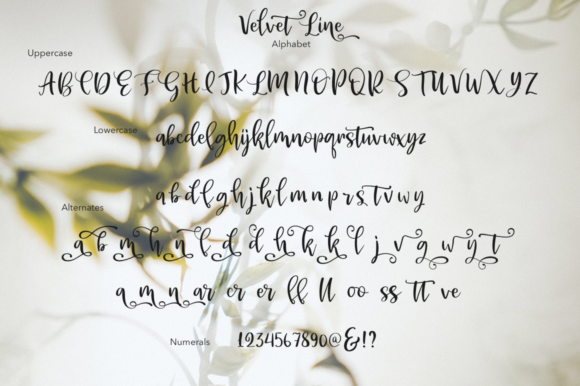 Velvet Line
Alphabet
Uppercase
ABCDEFGHIJKLMNOPQRSTUVWXYZ
Lowercase
abcdefghijklmnopqrstuvwxyz
abdlghjklmnprstvwy
Alternates
a b m h n l d d h k k l j v g w y t
a m n ar cr er ll ll oo ss tt ve
Numerals
1234567890@&!?